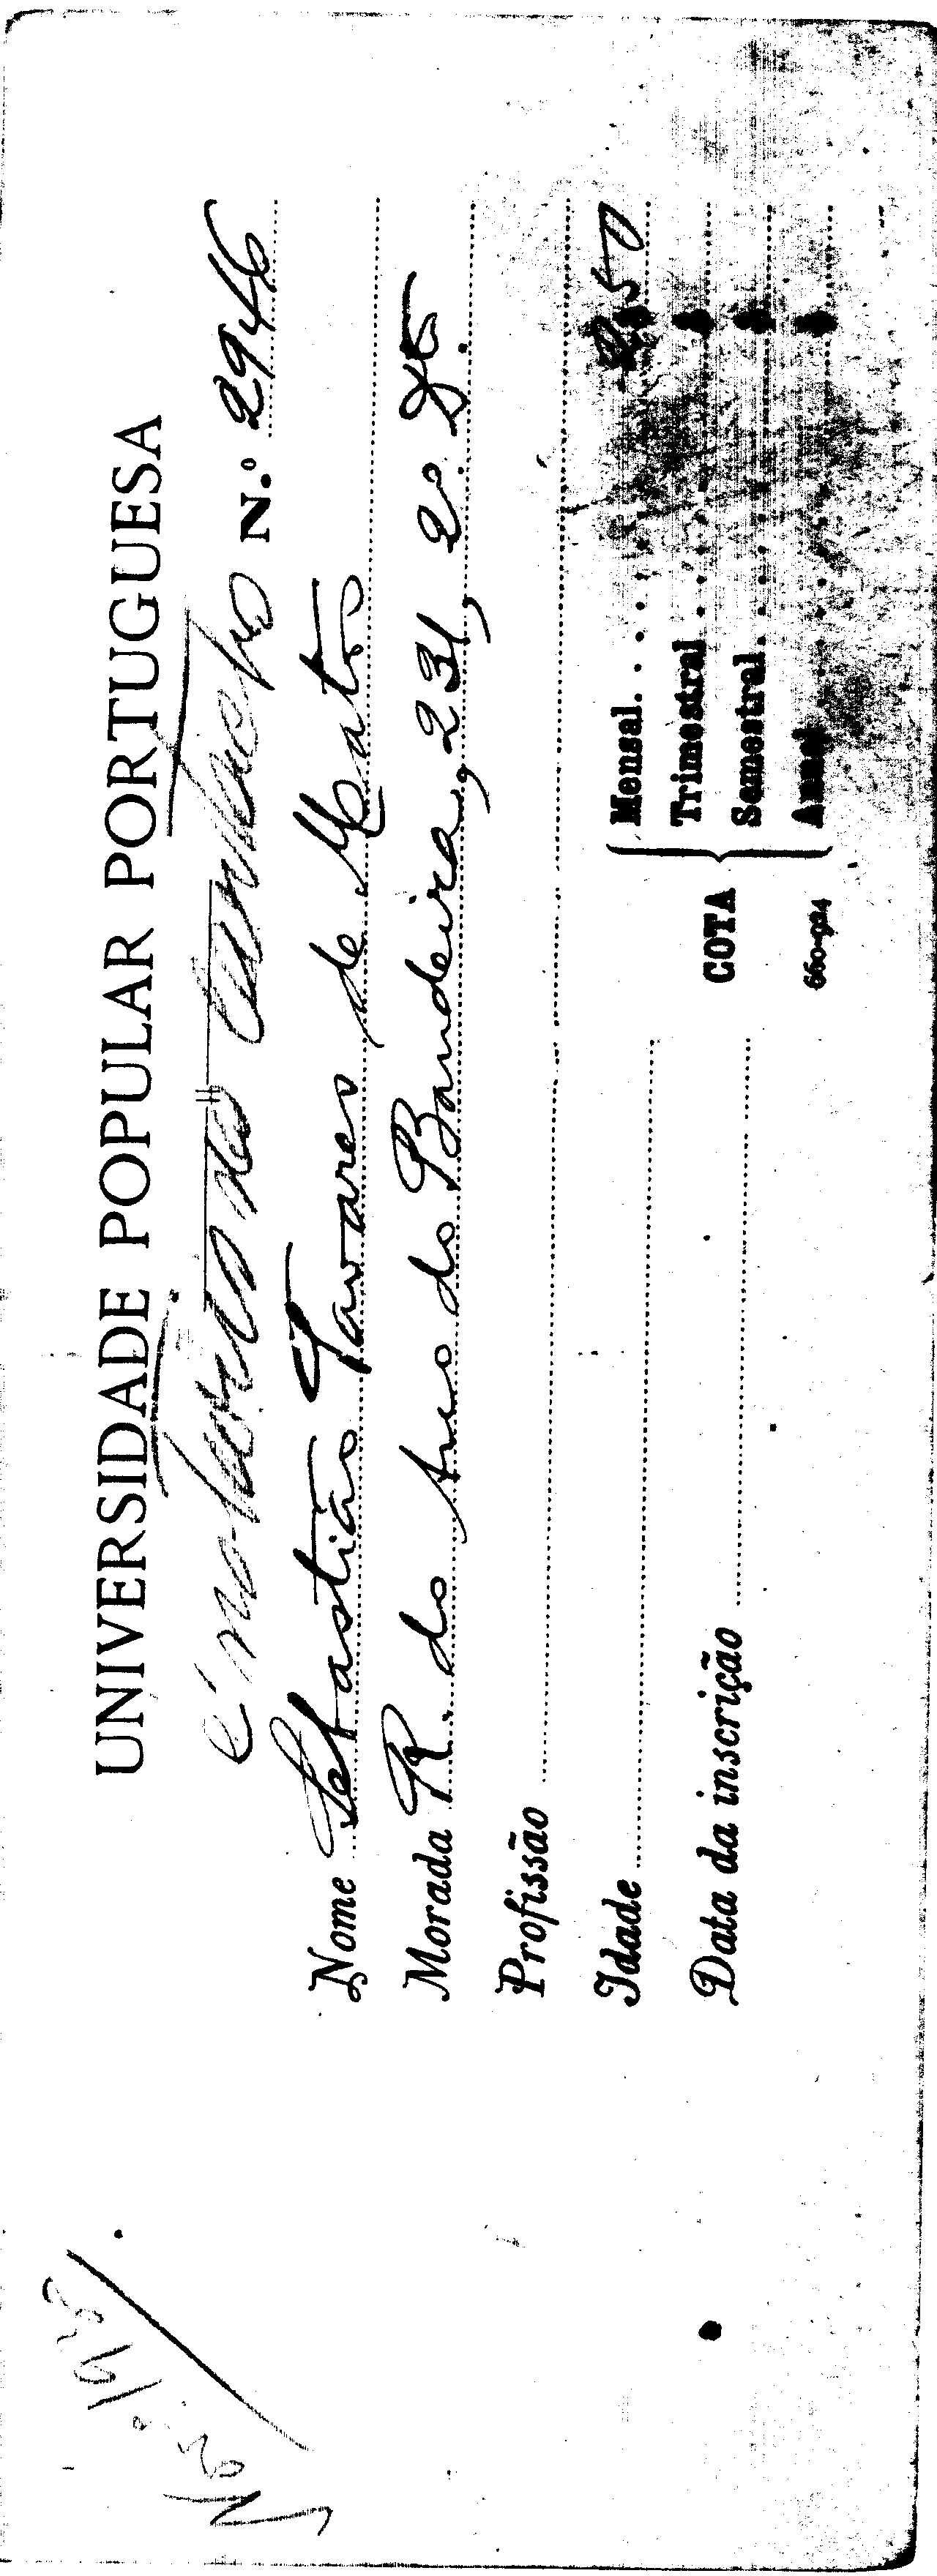 UNIVERSIDADE POPULAR PORTUGUESA
N.º 2946
Nome Sebastião Tavares de Matos
Morada R. do Arco do Bandeira, 231, 2º. Dto.
Profissão
Idade
Data da inscrição
COTA
Mensal. . . . 2$50
Trimestral . . . $
Semestral. . . . $
Anual . . . . $
660-924